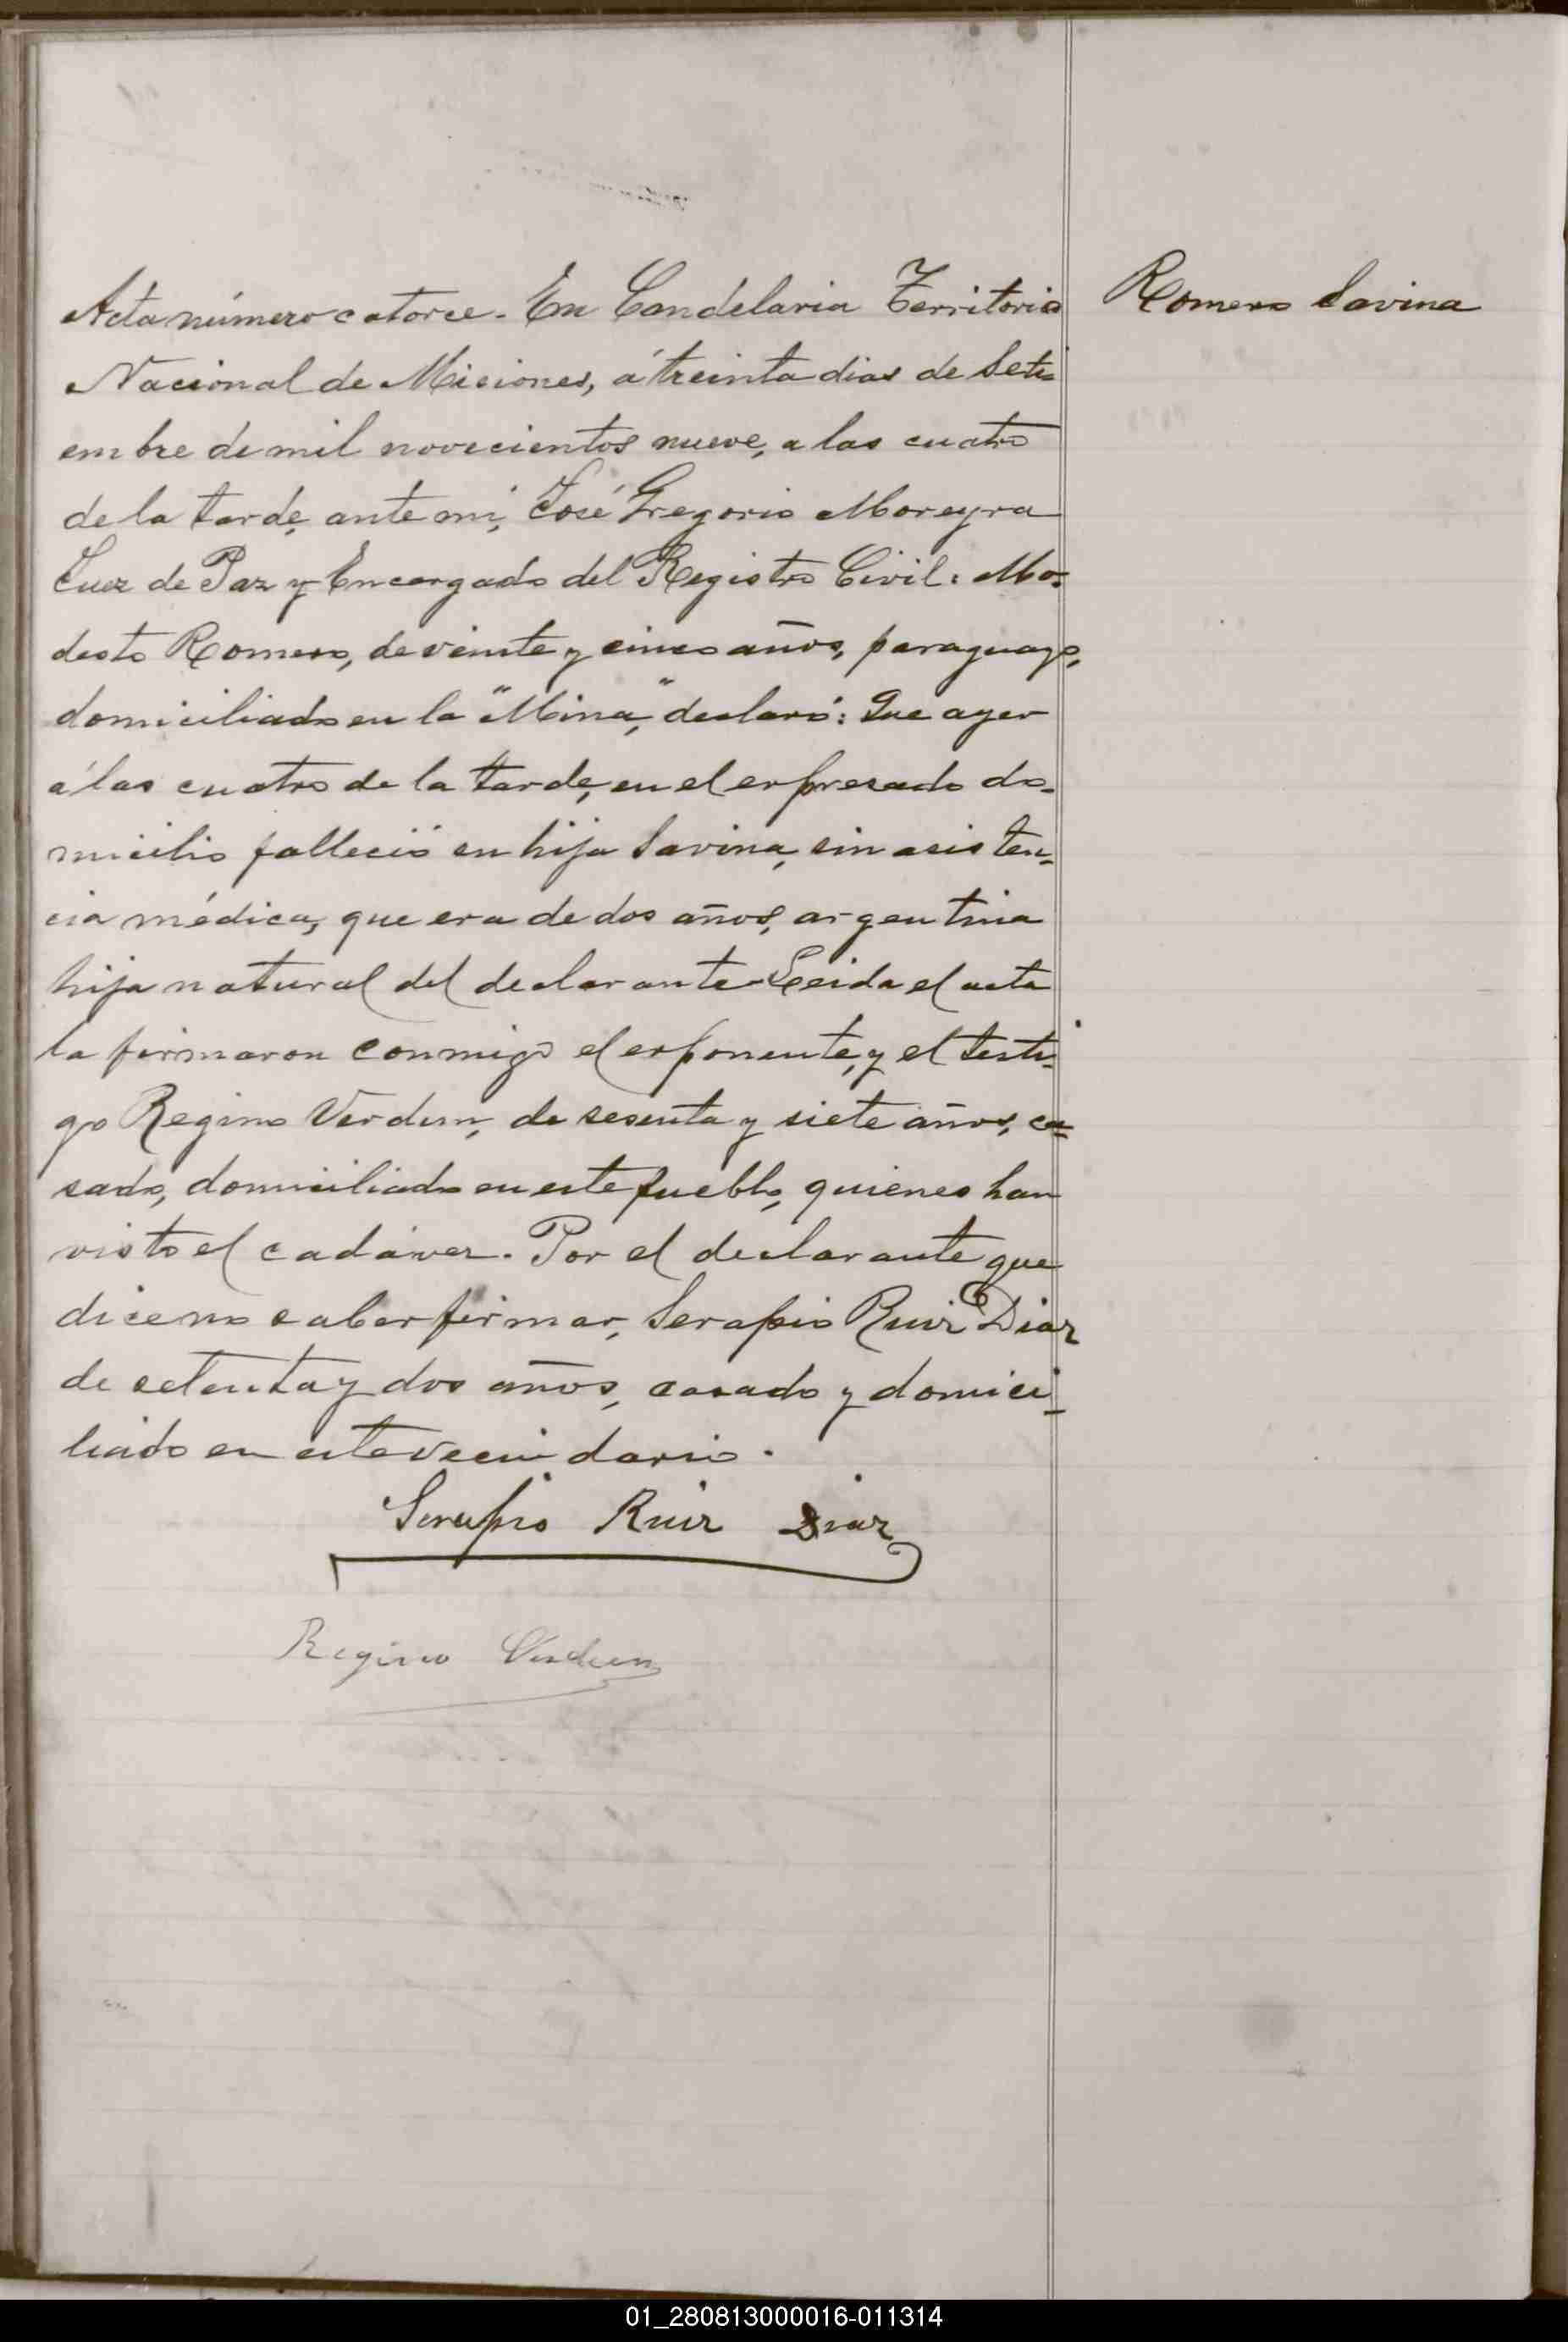 Acta número catorce. En Candelaria Territorio
Romero Savina
Nacional de Misiones, á treinta dias de Seti-
embre de mil novecientos nueve, a las cuatro
de la tarde, ante mi, José Gregorio Moreyra
Juez de Paz y Encargado del Registro Civil: Mo-
desto Romero, de veinte y cinco años, paraguayo,
domiciliado en la "Mina", declaró: Que ayer
á las cuatro de la tarde, en el expresado do-
micilio falleció su hija Savina, sin asisten-
cia médica, que era de dos años, argentina
hija natural del declarante. Leida el acta
la firmaron conmigo el exponente, y el testi-
go Regino Verdun, de sesenta y siete años, ca-
sado, domiciliado en este pueblo, quienes han
visto el cadáver. Por el declarante que
dice no saber firmar, Serapio Ruiz Diaz
de setenta y dos años, casado y domici-
liado en este vecindario.
Serapio Ruiz Diaz
Regino Verdun
01_280813000016-011314